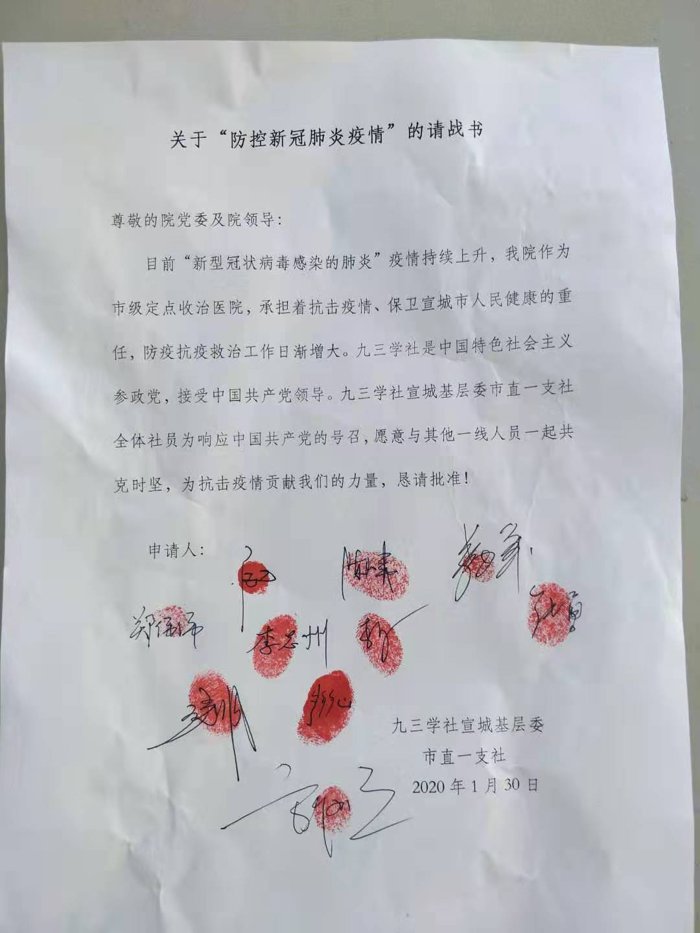 关于“防控新冠肺炎疫情”的请战书
尊敬的院党委及院领导：
目前“新型冠状病毒感染的肺炎”疫情持续上升，我院作为
市级定点收治医院，承担着抗击疫情、保卫宣城市人民健康的重
任，防疫抗疫救治工作日渐增大。九三学社是中国特色社会主义
参政党，接受中国共产党领导。九三学社宣城基层委市直一支社
全体社员为响应中国共产党的号召，愿意与其他一线人员一起共
克时坚，为抗击疫情贡献我们的力量，恳请批准！
申请人：
李志州
九三学社宣城基层委
市直一支社
2020年1月30日